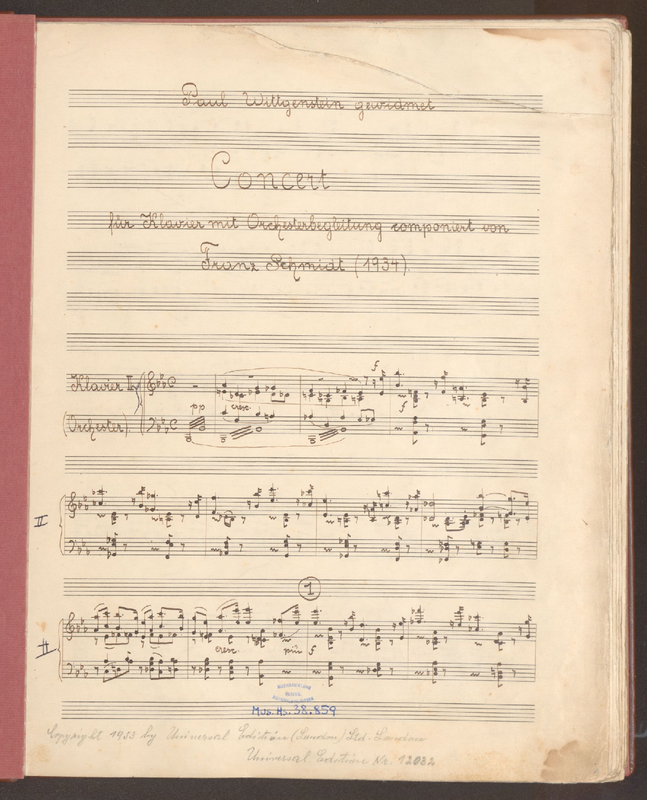 Paul Wittgenstein gewidmet
Concert
für Klavier mit Orchesterbegleitung componiert von
Franz Schmidt (1934).
Klavier II
(Orchester)
f
pp cresc. f
II
1
II
cresc. più f
Mus. Hs. 38.859
Copyright 1953 by Universal Edition (London) Ltd. London
Universal Edition Nr. 12032